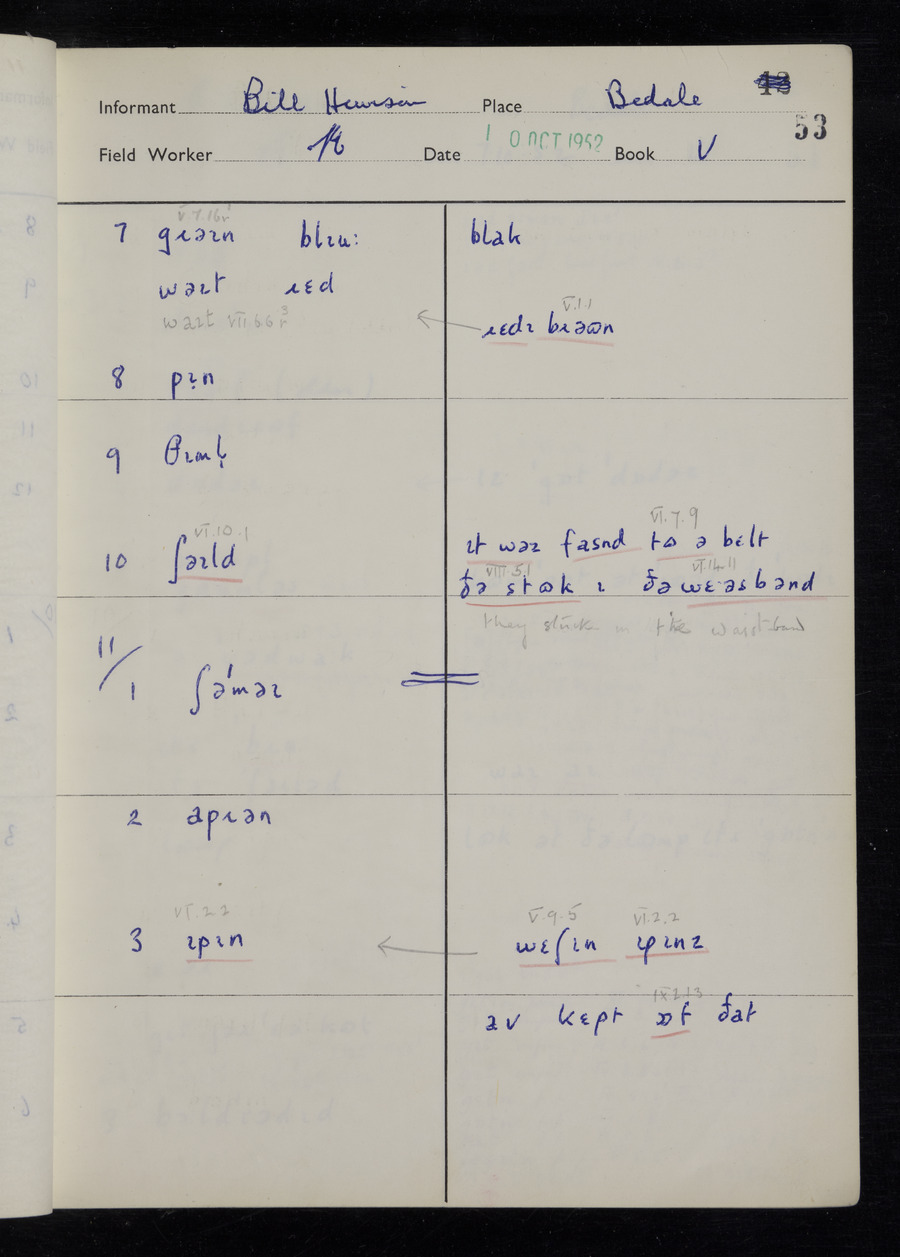 Informant Bill Hewison Place Bedale 53
Field Worker Date 1 0 OCT 1952 Book V
V.7.16r
7 gɹəɪn blɪu: blak
wəɪt ɹɛd
V.1.1
waɪt VII.6.6 ɹɛdɪ bɹəʊn
8 pɪn
9 θɪml̩
VI.10.1 VI.7.9
10 ʃəɪld ɪt wəz fasnd tə ə bɛlt
VIII.5.1 VI.14.11
ðə stʊk ɪ ðə wɛəsbənd
they stuck in the waist-band
11/1 ʃəˈməɪ
2 apɹən
VI.2.2 V.9.5 VI.2.2
3 ɪpɪn wɛʃɪn ɪpɪnz
IX.2.13
əv kɛpt ɒf ðat